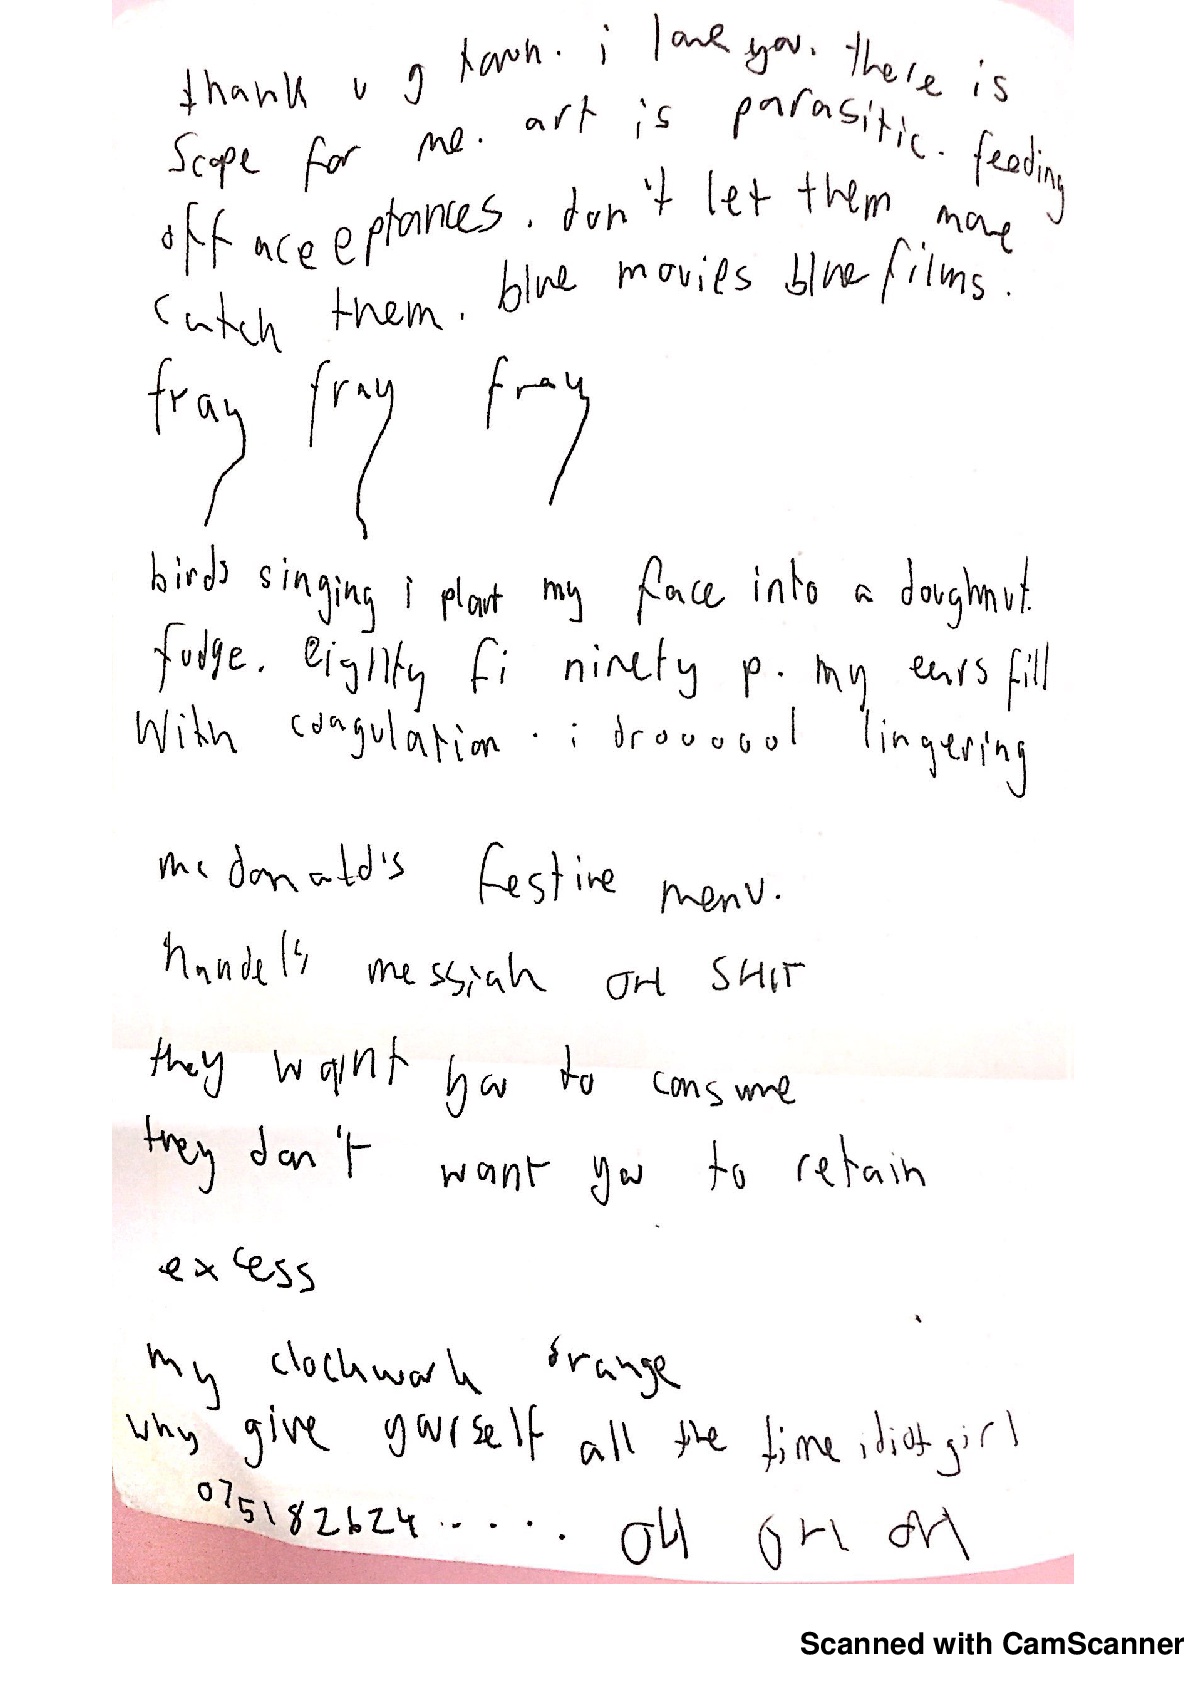 thank u g town. i love you. there is
scope for me. art is parasitic. feeding
off acceeptances. don't let them move
catch them. blue movies blue films.
fray fray fray
birds singing i plant my face into a doughnut.
fudge. eighty fi ninety p. my ears fill
with coagulation. i droooool lingering
mcdonald's festive menu.
handel's messiah OH SHIT
they want you to consume
they don't want you to retain
excess
my clockwork orange
why give yourself all the time idiot girl
075182624..... OH OH OH
Scanned with CamScanner